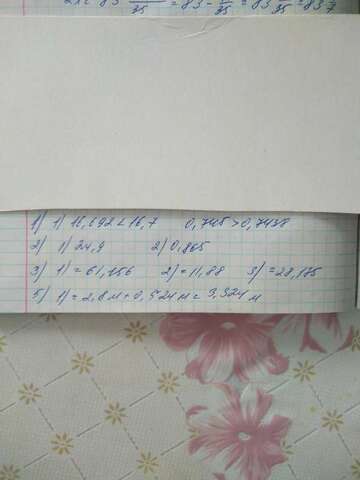 = 83 - = 83 = 83
1) 1) 16,692 < 16,7 0,745 > 0,7438
2) 1) 24,9 2) 0,865
3) 1) = 61,156 2) = 11,88 3) = 28,175
5) 1) = 2,8 м + 0,524 м = 3,324 м